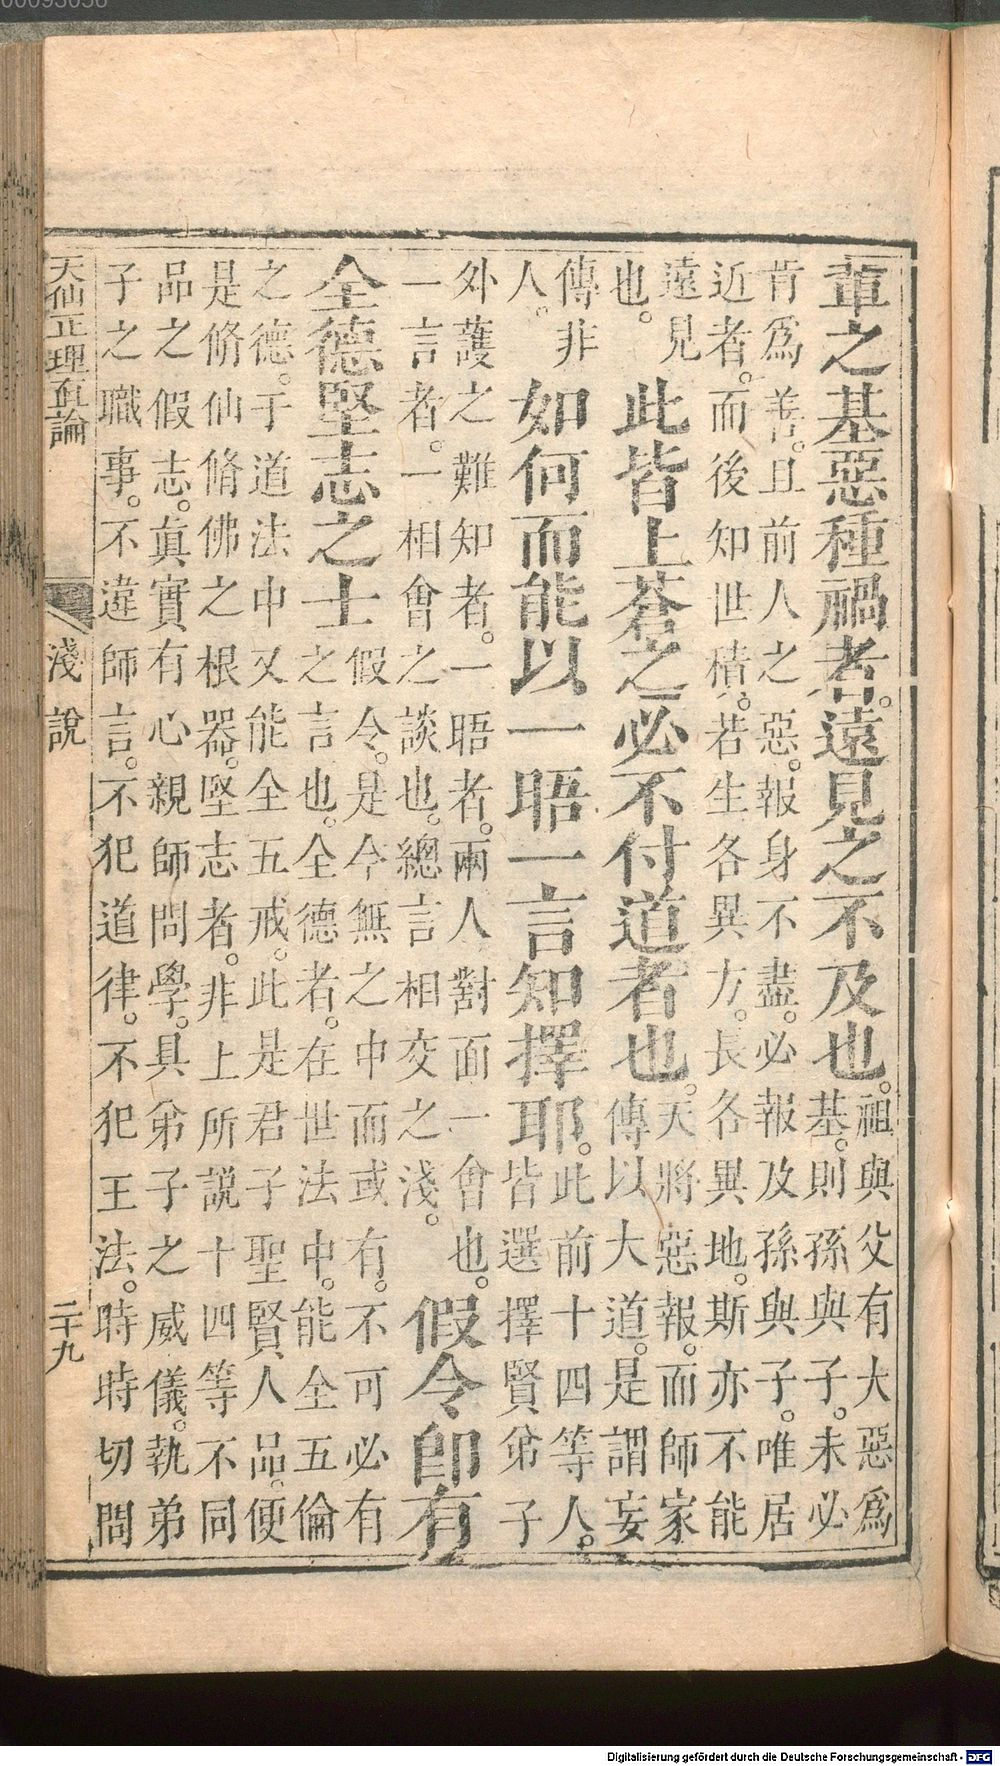 軰之基惡種禍者。遠見之不及也。
祖與父有大惡爲
基。則孫與子。未必
肯爲善。且前人之惡。報身不盡。必報及孫與子。唯居
近者。而後知世積。若生各異方。長各異地。斯亦不能
遠見
也。
此皆上蒼之必不付道者也。
天將惡報。而師家
傳以大道。是謂妄
傳非
人。
如何而能以一晤一言知擇耶。
此前十四等人。
皆選擇賢弟子
外護之難知者。一晤者。兩人對面一會也。
一言者。一相會之談也。總言相交之淺。
假令卽有
全德堅志之士
假令。是今無之中而或有。不可必有
之言也。全德者。在世法中。能全五倫
之德。于道法中又能全五戒。此是君子聖賢人品。便
是脩仙脩佛之根器。堅志者。非上所説十四等不同
品之假志。眞實有心親師問學。具弟子之威儀。執弟
子之職事。不違師言。不犯道律。不犯王法。時時切問
天仙正理直論 淺說 二十九
Digitalisierung gefördert durch die Deutsche Forschungsgemeinschaft - DFG